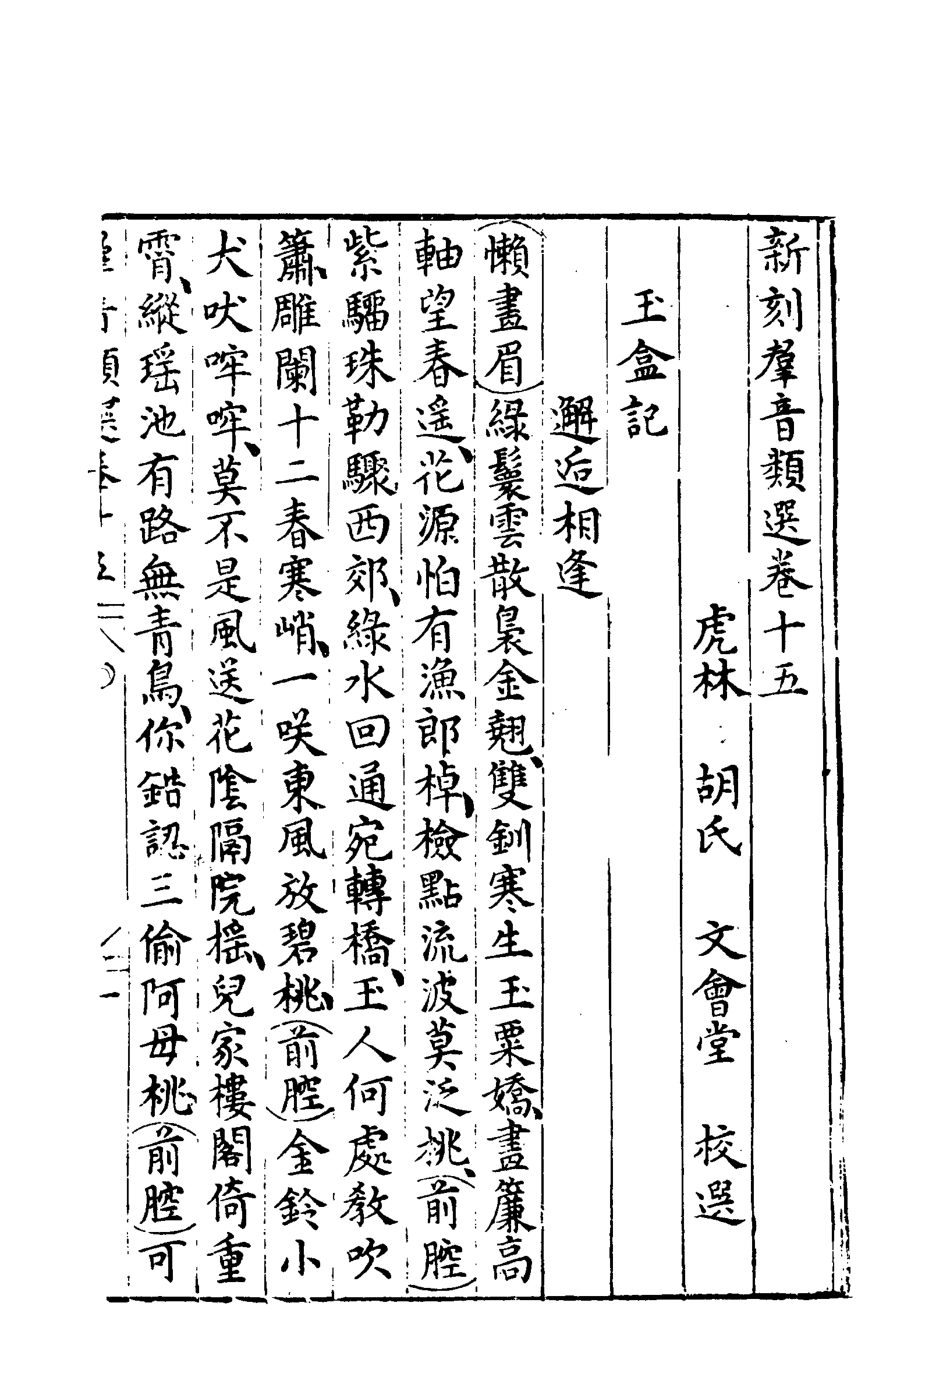 新刻羣音類選卷十五
虎林　胡氏　文會堂　校選
玉盒記
邂逅相逢
（懶畫眉）綠鬟雲散裊金翹、雙釧寒生玉粟嬌、畫簾高
軸望春遥、花源怕有漁郎棹、檢點流波莫泛桃、（前腔）
紫騮珠勒驟西郊、綠水回通宛轉橋、玉人何處教吹
簫、雕闌十二春寒峭、一咲東風放碧桃、（前腔）金鈴小
犬吠㗒㗒、莫不是風送花陰隔院摇、兒家樓閣倚重
霄、縱瑶池有路無青鳥、你錯認三偷阿母桃、（前腔）可